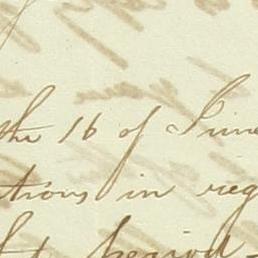 the 16 of June
tions in reg
t period